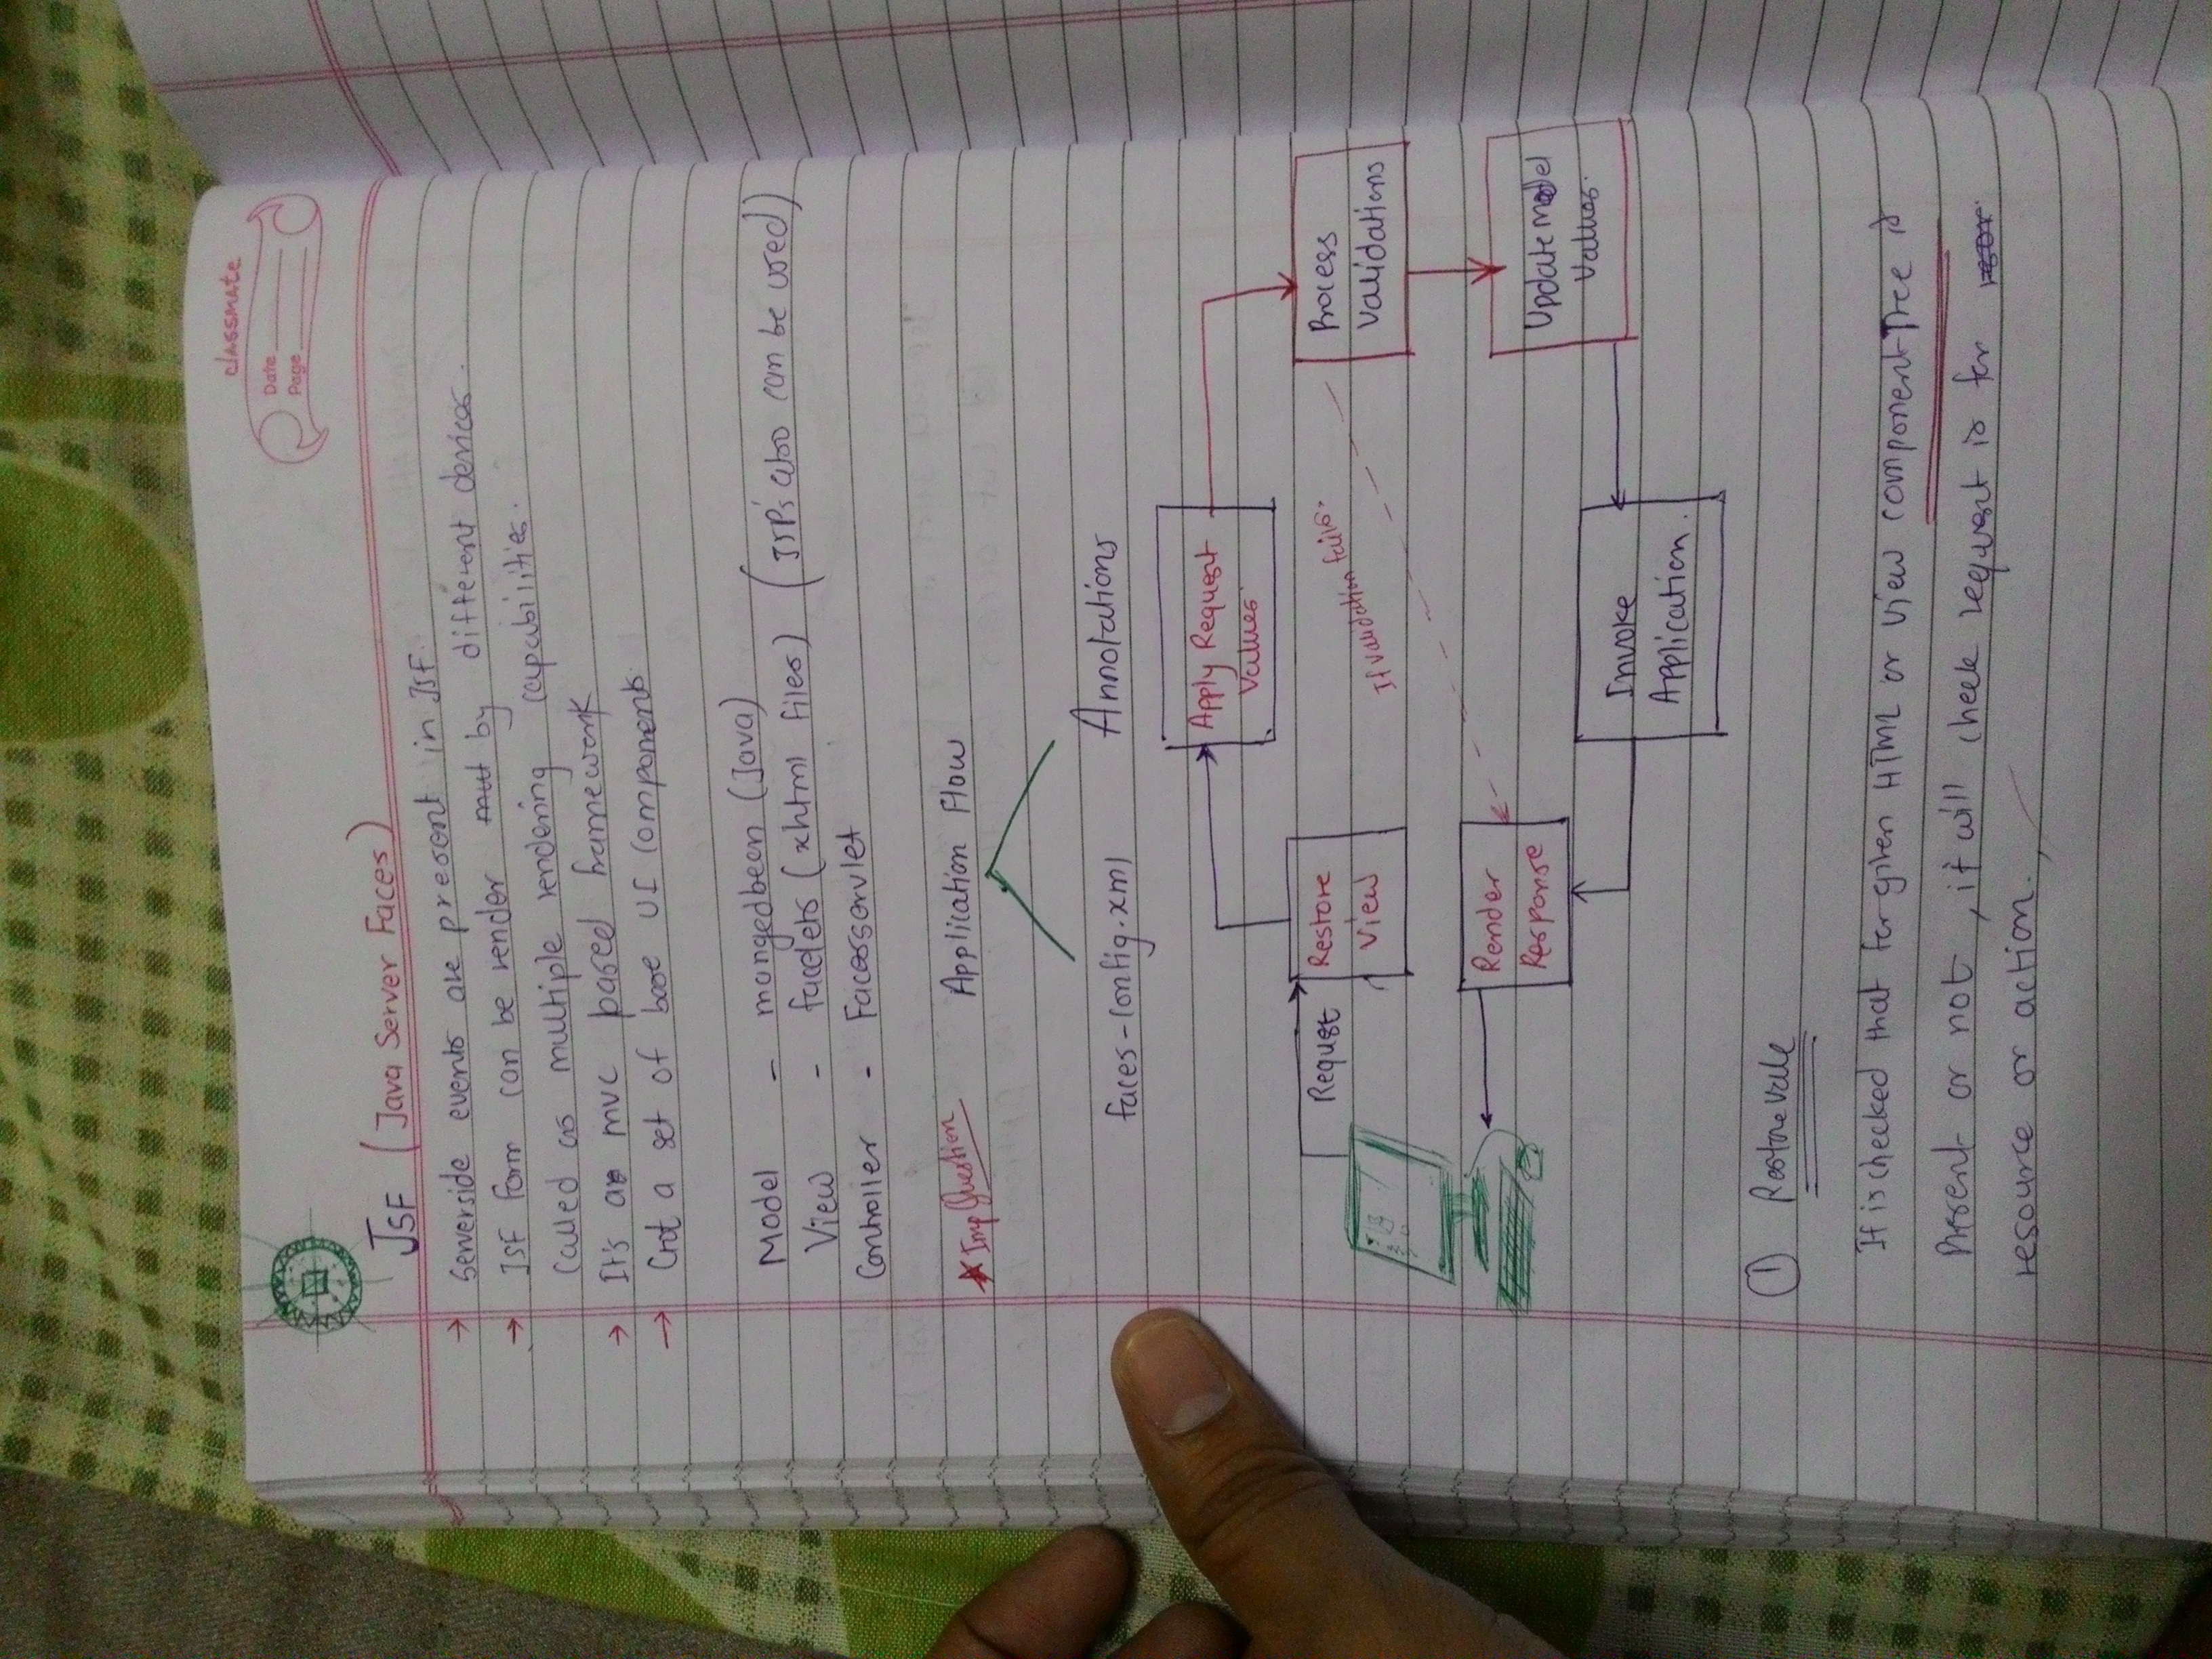 classmate
Date
Page
JSF (Java Server Faces)
→ Serverside events are present in JSF.
→ JSF form can be render by different devices.
called as multiple rendering capabilities.
→ It's a mvc based framework
→ Got a set of base UI components.
Model - mangedbeen (Java)
View - facelets (xhtml files) (JSP's also can be used)
Controller - Facesservlet
★ Imp Question Application Flow
faces-config.xml Annotations
Apply Request
Values
Request
Restore
View
If validation fails.
Process
Validations
Render
Response
Update model
Values.
Invoke
Application.
① Restore
It is checked that for given HTML or view component Tree is
Present or not, it will check request is for
resource or action.